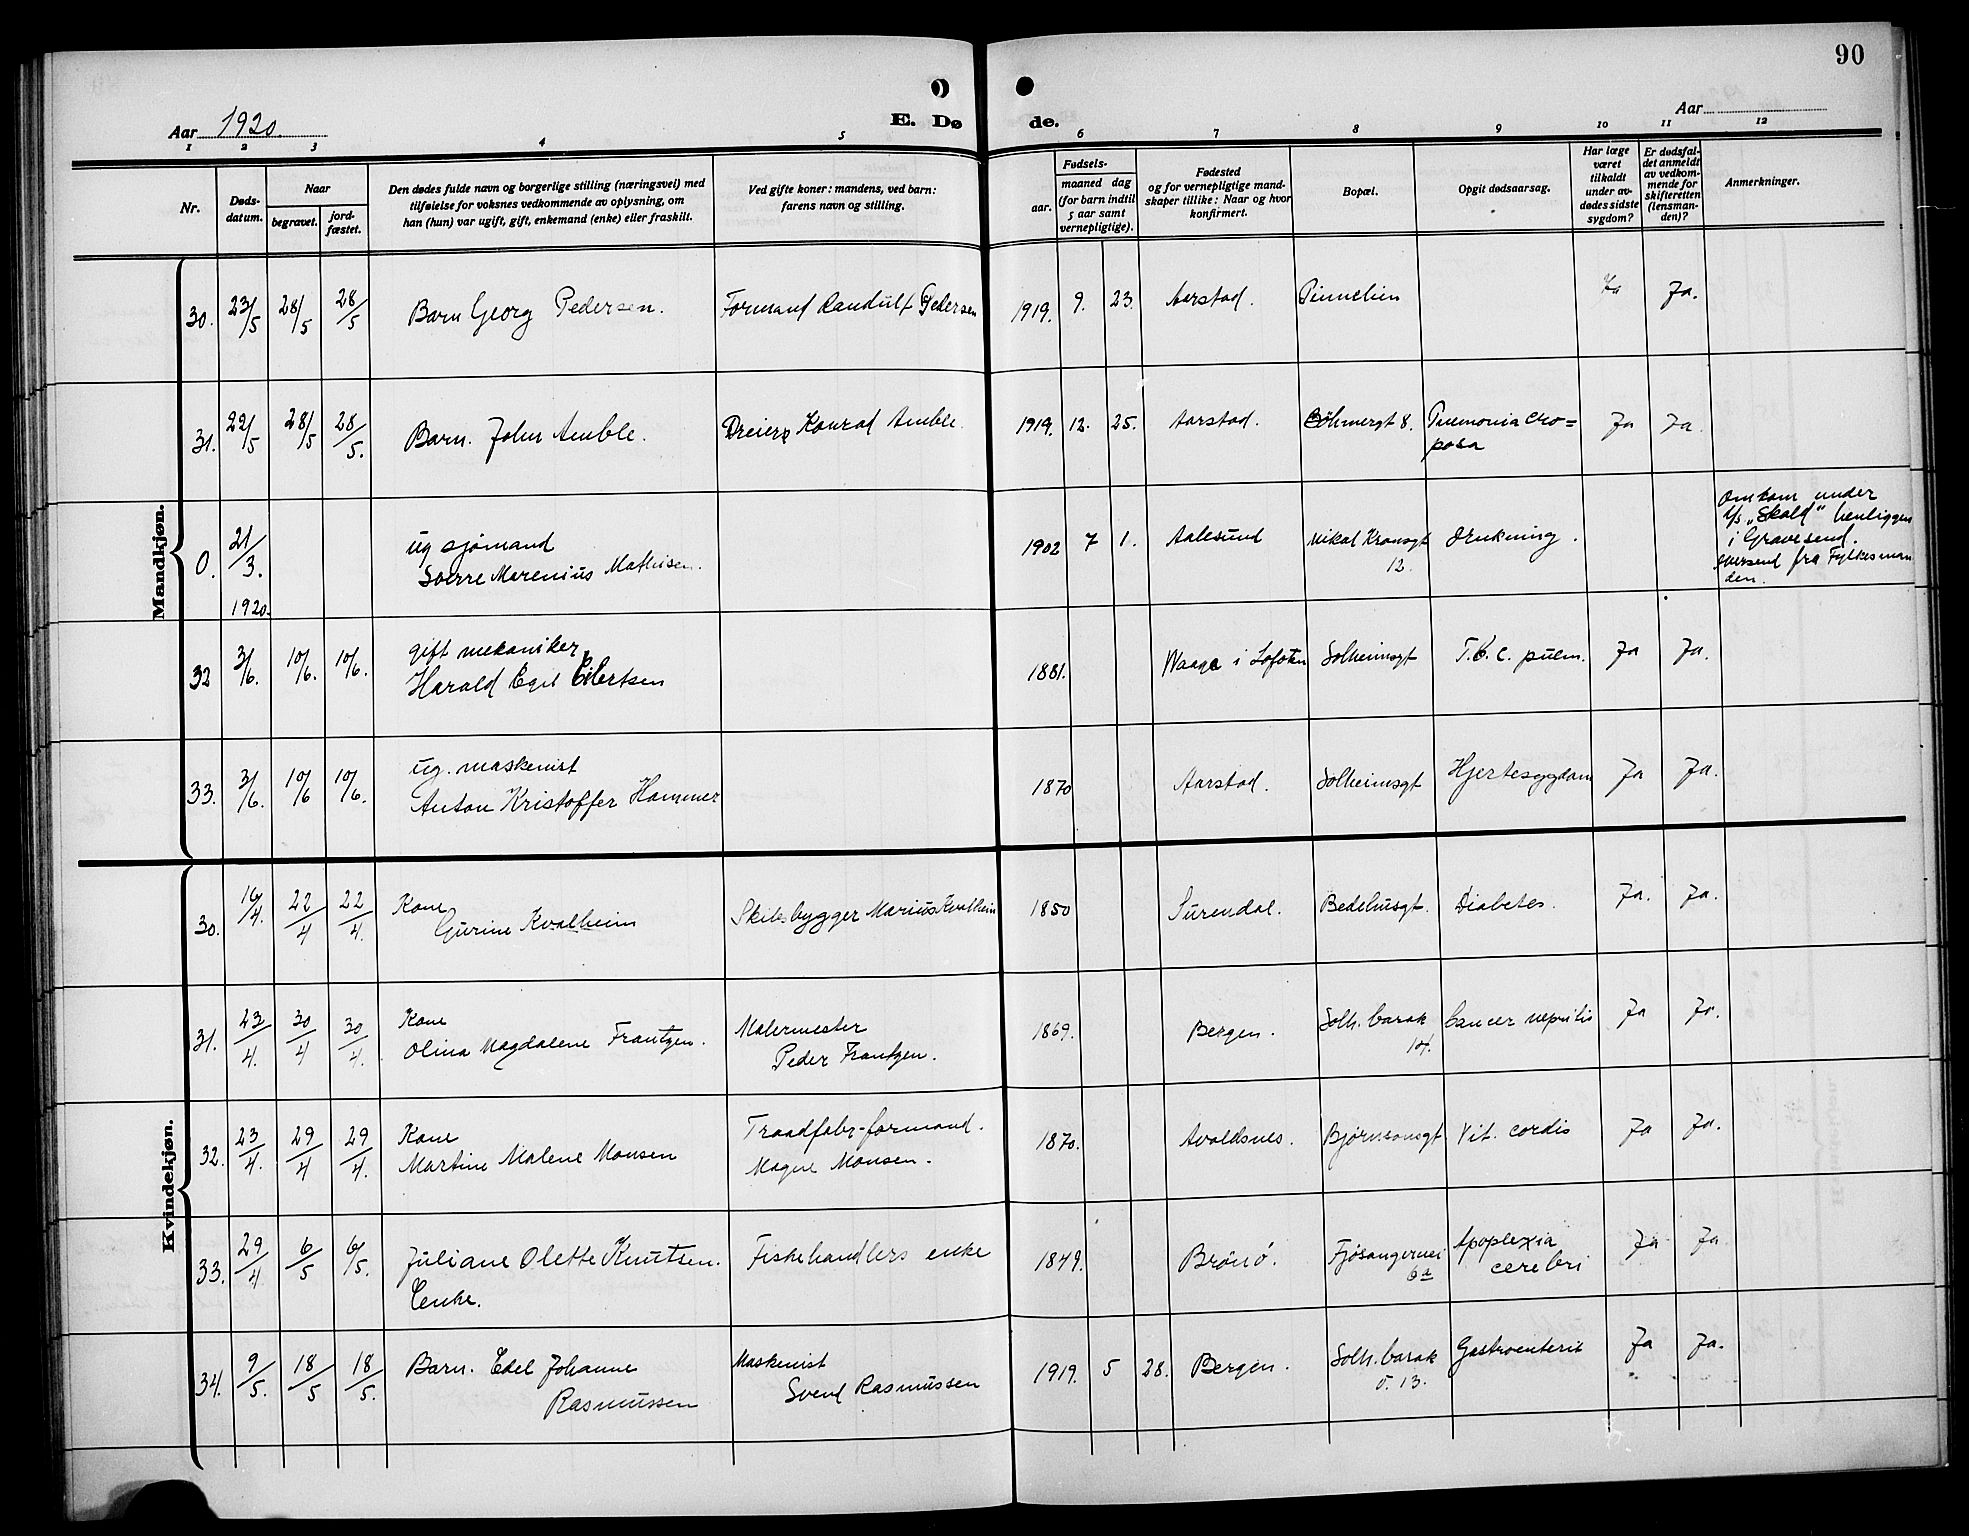 90
Aar 1920.
E. Dø
de.
Aar
1 2 3 4 5 6 7 8 9 10 11 12
Nr.
Døds-
datum.
Naar
begravet.
jord-
fæstet.
Den dødes fulde navn og borgerlige stilling (næringsvei) med
tilføielse for voksnes vedkommende av oplysning, om
han (hun) var ugift, gift, enkemand (enke) eller fraskilt.
Ved gifte koner: mandens, ved barn:
farens navn og stilling.
Fødsels-
aar.
maaned dag
(for barn indtil
5 aar samt
vernepligtige).
Fødested
og for vernepligtige mand-
skaper tillike: Naar og hvor
konfirmert.
Bopæl.
Opgit dødsaarsag.
Har læge
været
tilkaldt
under av-
dødes sidste
sygdom?
Er dødsfal-
det anmeldt
av vedkom-
mende for
skifteretten
(lensman-
den)?
Anmerkninger.
Mandkjøn.
30. 23/5 28/5 28/5 Barn Georg Pedersen. Formand Randulf Pedersen 1919. 9. 23. Aarstad. Ja Ja.
31. 22/5 28/5 28/5. Barn. John Amble. Dreier Konrad Amble. 1919. 12. 25. Aarstad. Böhmergt 8. Pnemonia cro=
posa Ja Ja.
0. 21/3. 1920. ug sjömand
Sverre Marenius Mathisen. 1902 7 1. Aalesund Mikal Kronsgt
12. Drukning. Omkom under
t/s "Skald" henliggen
i Gravesend.
oversend fra Fylkesman
den.
32 3/6. 10/6. 10/6. gift mekaniker
Harald Egil Eilertsen 1881. Waage i Lofoten Solheimsgt T.b.c. pulm. Ja Ja.
33. 3/6. 10/6 10/6. ug. maskenist
Anton Kristoffer Hammer 1870 Aarstad. Solheimsgt Hjertesygdom Ja Ja.
Kvindekjøn.
30. 16/4. 22/4 22/4. Kone
Gurine Kvalheim Skibsbygger Marius Kvalheim 1850 Surendal. Bedehusgt. Diabetes. Ja. Ja.
31. 23/4. 30/4 30/4. Kone
Olina Magdalene Frantzen. Malermester
Peder Frantzen. 1869. Bergen. Solh. barak
14. Cancer Ja Ja.
32. 23/4. 29/4 29/4. Kone
Martine Malene Monsen Traadfabr-formand.
Magne Monsen. 1870. Avaldsnes. Bjørnsonsgt. Vit. cordis Ja Ja.
33. 29/4 6/5 6/5. Juliane Olette Knutsen.
Enke. Fiskehandlers enke 1849. Brönö. Fjösangervei
6a Apoplexia
cerebri Ja Ja
34. 9/5. 18/5 18/5. Barn. Edel Johanne
Rasmussen Maskenist
Svend Rasmussen 1919. 5 28. Bergen. Solh. barak
5. 13. Gastroenterit Ja Ja.